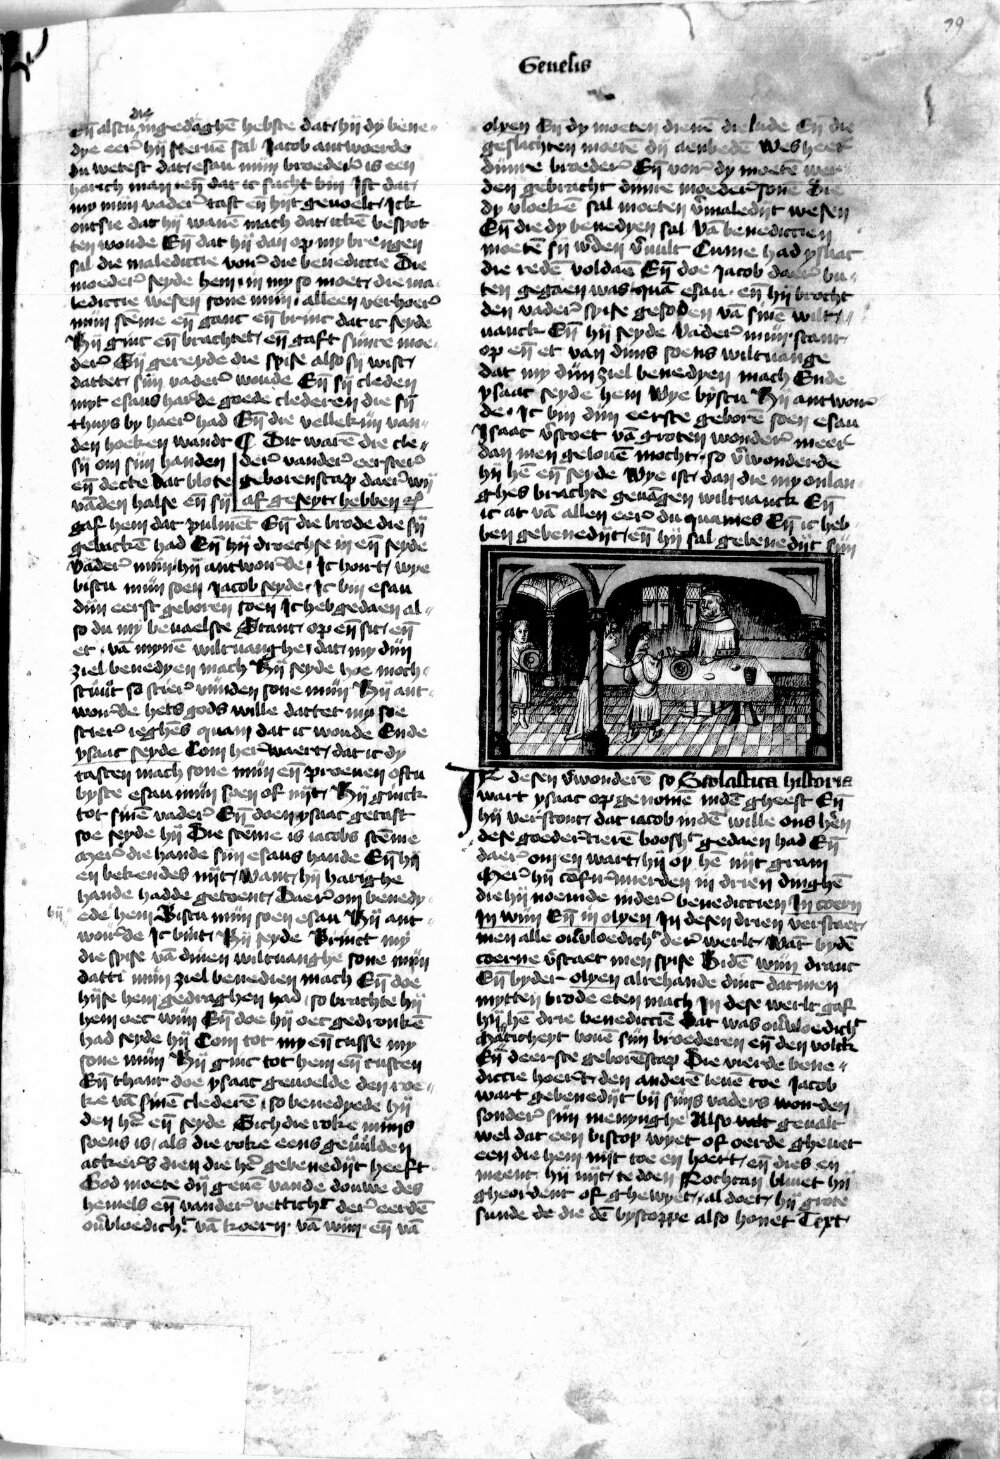 29
Genesis
die
Eñ alstu ingedaghē hebste dat hij dy bene-
dye eer̄ hij steruē sal Jacob antwoerde
du wetest dat esau mijn broeder̄ is een
harich man eñ dat ic sacht bin Ist dat
my mijn vader̄ tast eñ hijt geuoelt Ick
ontsie dat hij wanē mach dat ickē bespot
ten woude Eñ dat hij dan op my brengen
sal die maledictie vour̄ die benedictie Die
moeder̄ seyde hem in my so moet die ma-
ledictie wesen sone mijn alleen verhoer̄
mijn stēme eñ ganc eñ brinc dat ic seyde
Hij ginc eñ brachtet eñ gaft sijnre moe-
der̄ Eñ gereyde die spise also sij wist
dattet sijn vader̄ woude Eñ sij cleden
myt esaus har̄de goede clederen die sij
thuys by haer̄ had Eñ die vellekijn van-
den hoeken wandt C Dit warē die cle-
sij om sijn handen der̄ vander̄ eerster̄
eñ decte dat blote geborenscap daer̄ wij
vāden halse eñ sij af geseyt hebben
gaf hem dat pulmet Eñ die brode die sij
gebackē had Eñ hij droechse in eñ seyde
Vader̄ mijn hij antwour̄de Ic hort wye
bistu mijn soen Jacob seyde Ic bin esau
dijn eerst geboren soen Ic heb gedaen al-
so du my beuaelste Stant op eñ sit eñ
et vā mynē wiltuanghe dat my dijn
ziel benedyen mach Hij seyde hoe moch-
stuūt so stier̄ vijnden sone mijn Hij ant-
wour̄de hets gods wille dattet my soe
stier̄ ieghēs quam dat ic woude Ende
ysaac seyde Com her̄waert dat ic dy
tasten mach sone mijn eñ proeuen oftu
byste esau mijn soen of nijt Hij ginck
tot sinē vader̄ Eñ doen ysaac getast
soe seyde hij Die stēme is iacobs stēme
Mer̄ die hande sijn esaus hande Eñ hij
en bekendes nijt Want hij harighe
hande hadde getoent Daer̄ om benedy-
ede hem Bistu mijn soen esau Hij ant-
wour̄de Ic bint Hij seyde Brinct my
die spise vā dinen wiltuanghe sone mijn
datti mijn ziel benedien mach Eñ doe
hijse hem gedraghen had so brachte hij
hem oec wijn Eñ doe hij oec gedronkē
had seyde hij Com tot my eñ cusse my
sone mijn Hij ginc tot hem eñ custen
Eñ thant doe ysaac geuoelde den roe-
ke vā sinē clederē so benedyede hij
den hēr eñ seyde Sich die roke mijns
soens is als die roke eens geuulden
ackers dien die hēr gebenedijt heeft
God moete dij geuē vande douwe des
hemels eñ vander̄ vetticht der̄ eerdē
ouūloedicht vā koern vā wijn eñ vā
olyen Eñ dy moeten dienē die lude Eñ die
geslachten moetē dij aenbedē Wes heer̄
dijnre broeder̄ Eñ vour̄ dy moetē wer-
den gebracht dinre moeder̄ sone Die
dy vloekē sal moeten v̄maledijt wesen
Eñ die dy benedyen sal vā benedictien
moetē sij w̄den v̄uult Cume had ysaac
die redē voldaē Eñ doe Jacob daer̄ bu-
ten gegaen was quā esau eñ hij brocht
den vader̄ spise gesoden vā sinē wilt-
uanck Eñ hij seyde Vader̄ mijn stant
op eñ et van dijns soens wiltuange
dat my dijn ziel benedyen mach Ende
ysaac seyde hem Wye bystu Hij antwour̄
de Ic bin dijn eerste geborē soen esau
Isaac v̄scroet vā groten wonder̄ meer̄
dan men gelouē mocht so v̄wonderde
hij hē eñ seyde Wye ist dan die my onlan-
ghes brachte geuāgen wiltuanck Eñ
ic at vā allen eer̄ du quames Eñ ic heb
ben gebenedijt eñ hij sal gebenedijt sijn
In desen v̄wonderē so Scolastica historia
wart ysaac op genomē indē gheest Eñ
hij verstont dat iacob indē wille ons hēn
dese goedertierē boosht gedaen had Eñ
daer̄ om en wart hij op hē nijt gram
Mer̄ hij cōfir̄meerden in drien dinghē
die hij noemde inder̄ benedictien In coern
In wijn Eñ in olyen In desen drien verstaet
men alle ouūloedicht der̄ werlt Wāt bydē
coerne v̄staet men spise Bidē wijn dranc
Eñ byder olyen alrehande dinc datmen
mytten brode eten mach In dese werlt gaf
hij hē drie benedictiē Dat was ouūloedicht
Māticheyt bouē sijn broederen eñ den volck
Eñ deerste geborēscap Die vierde bene-
dictie hoer̄t den anderē leuē toe Jacob
wart gebenedijt bij sijns vaders worden
sonder̄ sijn menynghe Also wat geualt
wel dat een biscop wyet of oerde gheuet
een die hem nijt toe en hoert eñ dies en
meent hij nijt te doen Nochtan bliuet hij
gheordent of ghewyet al doet hij grote
sunde de die dē byscoppe also honet Text